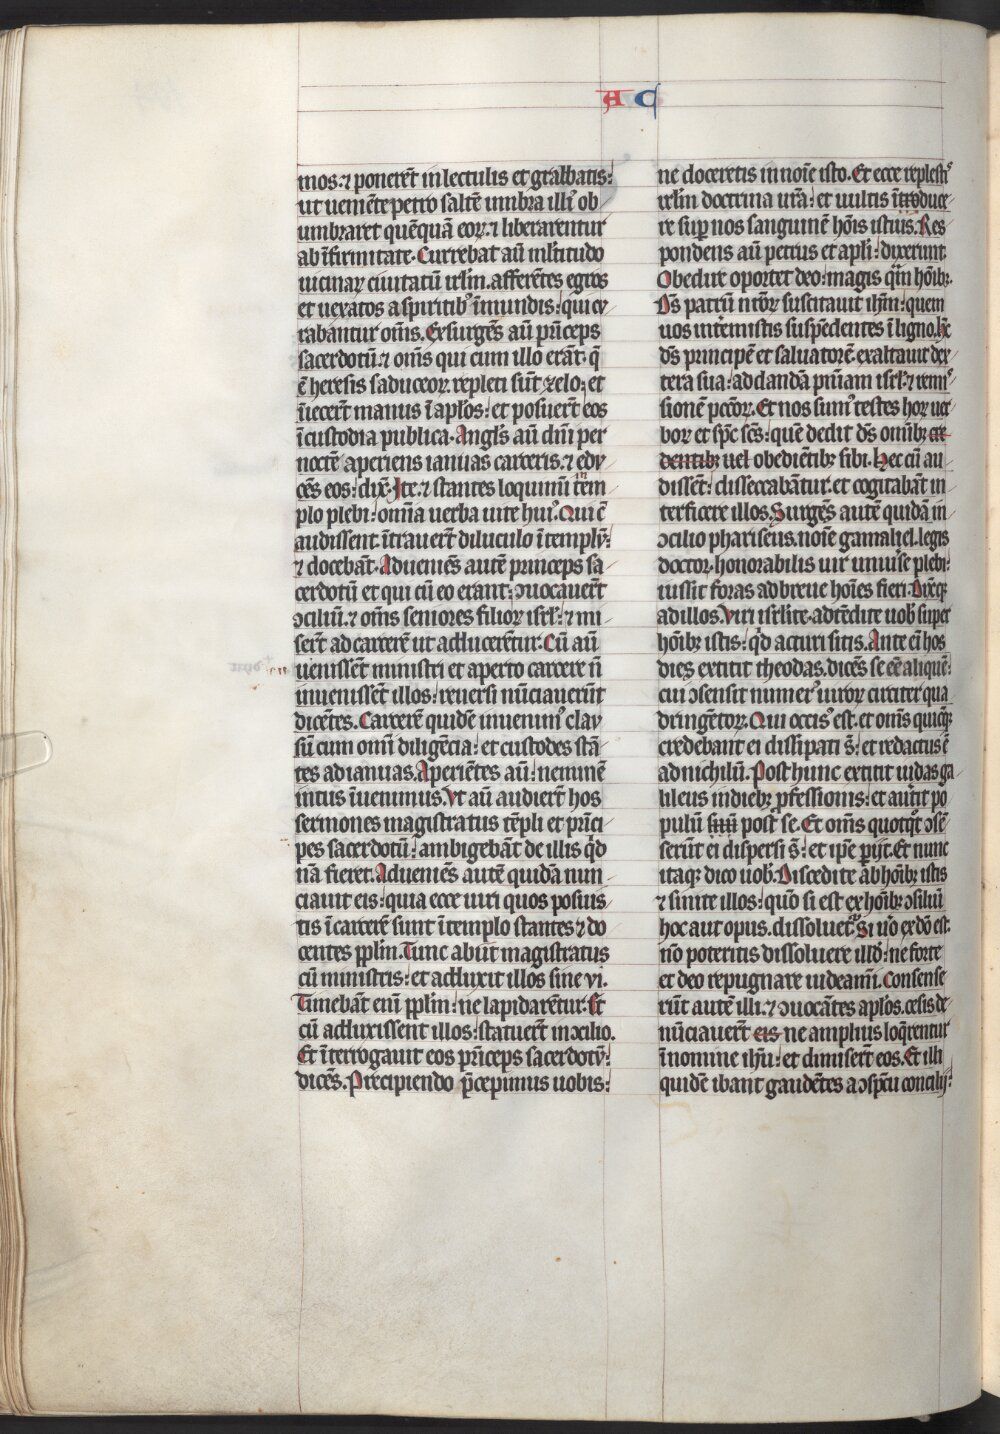 A C
mos. ⁊ ponerēt in lectulis et grabatis:
ut ueniēte petro saltē umbra illiꝰ ob
umbraret quēquā eoꝝ. ⁊ liberarentur
ab īfirmitate. Currebat aū mltitudo
uicinaꝝ ciuitatū irlm. afferētes egros
et uexatos a spiritibꝰ īmundis: qui cu
rabantur oms̄. Exsurgēs aū pn̄ceps
sacerdotū. ⁊ oms̄ qui cum illo erāt. q̄
ē heresis saduceoꝝ. repleti sūt zelo: et
īiecer̄t manus ī apl̓os: et posuer̄t eos
ī custodia publica. Angl̓s aū dn̄i per
noctē aperiens ianuas carceris. ⁊ edu
cēs eos: dix̄. Ite. ⁊ stantes loquimī ī tem
plo plebi: omn̄ia uerba uite huiꝰ. Qui cū
audissent. ītrauer̄t diluculo ī templū:
⁊ docebāt. Adueniēs autē princeps sa
cerdotū et qui cū eo erant: ↄuocauer̄t
ↄciliū. ⁊ oms̄ seniores filioꝝ isrl̓: ⁊ mi
ser̄t ad carcerē ut adducerētur. Cū aū
uenissēt ministri et aperto carcere n̄
inuenissēt illos: reuersi nūciauerūt
dicētes. Carcerē quidē inuenimꝰ clau
sū cum omī diligēcia: et custodes stā
tes ad ianuas. Aperiētes aū: neminē
intus īuenimus. Vt aū audier̄t hos
sermones magistratus tēpli et prīci
pes sacerdotū: ambigebāt de illis qd̓
nā fieret. Adueniēs autē quidā nun
ciauit eis: quia ecce uiri quos posuis
tis ī carcerē sunt ī templo stantes ⁊ do
centes ppl̄m. Tunc abiit magistratus
cū ministris: et adduxit illos sine vi.
Timebāt enī ppl̄m: ne lapidarētur. Et
cū adduxissent illos: statuer̄t in ↄcilio.
Et īterrogauit eos prīceps sacerdotū:
dicēs. Precipiendo p̄cepimus uobis:
ne doceretis in noīe isto. Et ecce replestiꝰ
irl̄m doctrina ur̄a: et uultis īduce
re suꝑ nos sanguinē hōis istius. Res
pondens aū petrus et apl̓i: dixerunt.
Obedire oportet deo: magis qm̄ hōībꝫ.
Ds̄ patrū nr̄oꝝ suscitauit ihm̄: quem
uos intemistis suspēdentes ī ligno. Hc̄
ds̄ principē et saluatorē exaltauit dex
tera sua: ad dandā pnīam isrl̓: ⁊ remis
sionē pcc̄oꝝ. Et nos sumꝰ testes hoꝝ uer
boꝝ et spc̄ sc̄s: quē dedit ds̄ omībꝫ cre
dentibꝫ uel obediētibꝫ sibi. Hec cū au
dissēt: dissecabātur. et cogitabāt in
terficere illos. Surgēs autē quidā in
ↄcilio phariseus. noīe gamaliel. legis
doctor. honorabilis uir uniuīse plebi:
iussit foras ad breue hoīes fieri. Dixitqꝫ
ad illos. Viri isrl̓ite. adtēdite uob̓ super
hōībꝫ istis: qd̓ acturi sitis. Ante enī hos
dies extitit theodas. dicēs se ēē aliquē:
cui ↄsensit numerꝰ uiroꝝ circiter qua
dringētoꝝ. Qui occisꝰ est. et oms̄ quicqꝫ
credebant ei dissipati s̄: et redactus ē
ad nichilū. Post hunc extitit iudas ga
lileus in diebꝫ ꝓfessionis: et auītit po
pulū post se. Et oms̄ quotqt̓ ↄsē
serūt ei dispersi s̄: et ipe pijt. Et nunc
itaqꝫ dico uob̓. Discedite ab hōībꝫ istis
⁊ sinite illos: quō si est ex hōībꝫ ↄsiliū
hoc aut opus. dissoluet̓. Si u̓o ex dō est.
nō poteritis dissoluere illd̓: ne forte
et deo repugnare uideamī. Consense
rūt autē illi. ⁊ ↄuocātes apl̓os. cesis de
nūciauer̄t eis ne amplius loqrentur
ī nomine ihū: et dimiser̄t eos. Et illi
quidē ibant gaudētes a ↄspc̄u concilij: